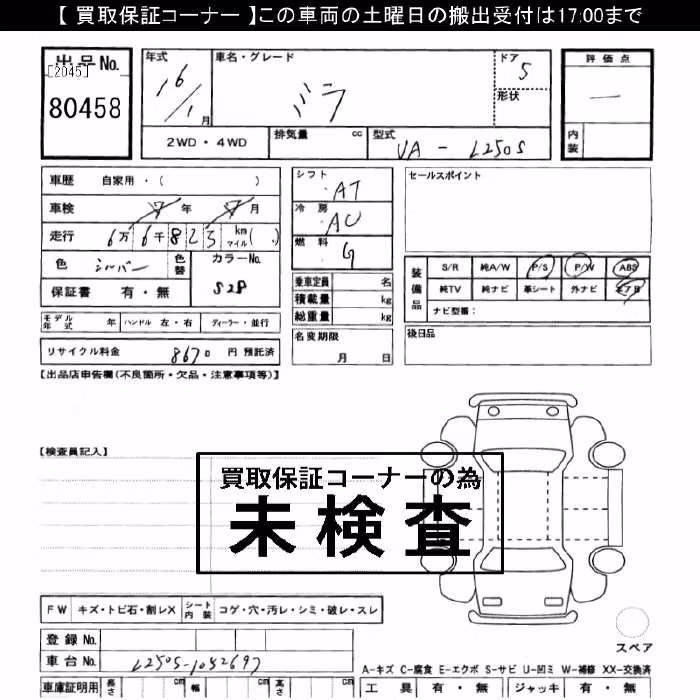 【 買取保証コーナー 】この車両の土曜日の搬出受付は17:00まで
出品No.
[2045]
80458
年式
16/1月
車名・グレード
ミラ
ドア
5
形状
評価点
内装
2WD・4WD
排気量 cc
型式
UA - L250S
車歴 自家用・( )
車検 年 月
走行 6万6千823 km マイル( )
色 シルバー 色替
カラーNo.
S28
保証書 有・無
シフト
AT
冷房
AC
燃料
G
乗車定員 名
積載量 kg
総重量 kg
セールスポイント
装備品
S/R 純A/W P/S P/W ABS
純TV 純ナビ 革シート 外ナビ エアB
ナビ型番:
モデル年式 年 ハンドル 左・右 ディーラー・並行
名変期限
月 日
後日品
リサイクル料金 8670 円 預託済
【出品店申告欄(不良箇所・欠品・注意事項等)】
【検査員記入】
買取保証コーナーの為
未検査
FW キズ・トビ石・割レX シート内装 コゲ・穴・汚レ・シミ・破レ・スレ
スペア
登録 No.
車台 No. L250S-1052697
A-キズ C-腐食 E-エクボ S-サビ U-凹ミ W-補修 XX-交換済
車庫証明用 長さ cm 幅 cm 高さ cm
工具 有・無 ジャッキ 有・無